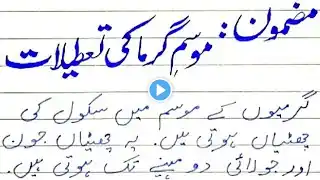 مضمون:
موسم گرما کی تعطیلات
گرمیوں کے موسم میں سکول کی
چھٹیاں ہوتی ہیں۔ یہ چھٹیاں جون
اور جولائی دو مہینے تک ہوتی ہیں۔